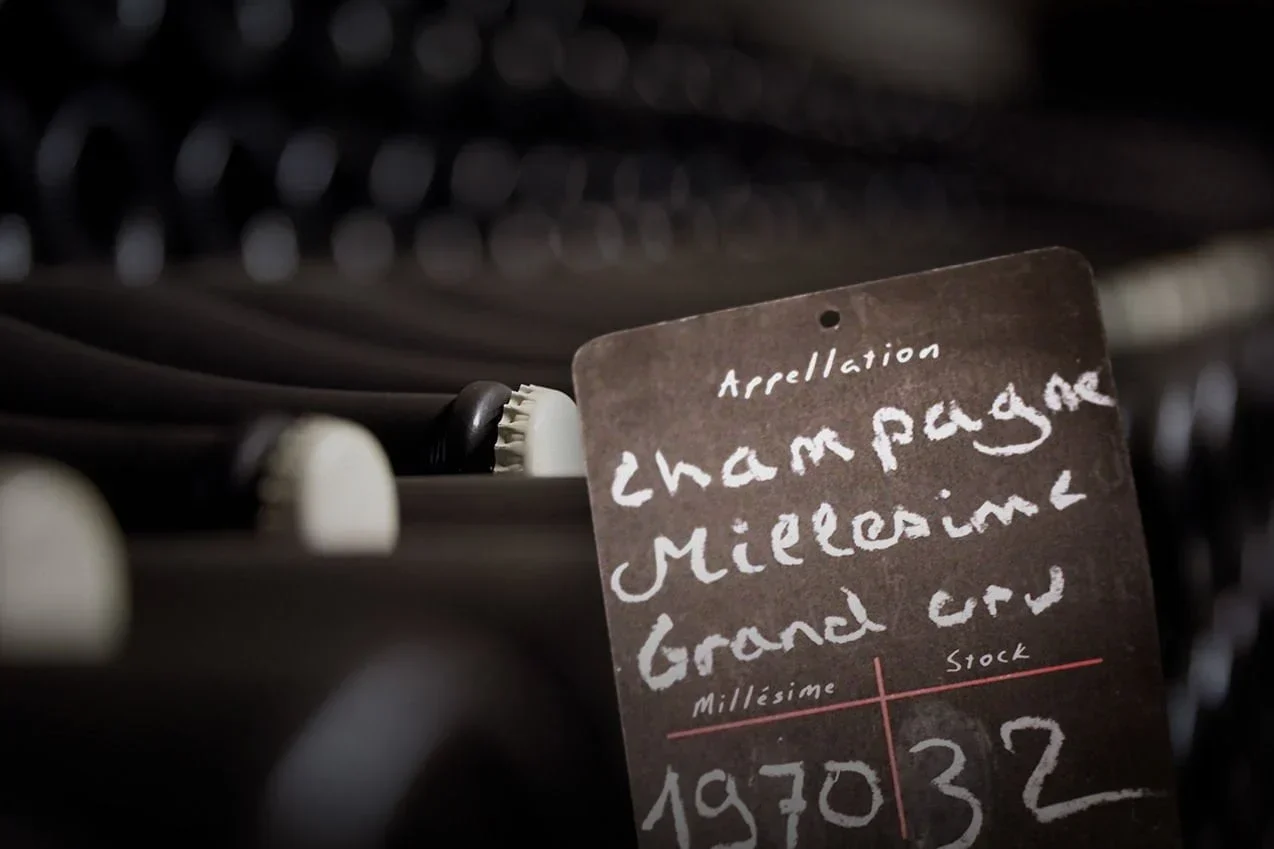 Appellation
Champagne
Millesime
Grand cru
Millésime Stock
1970 32